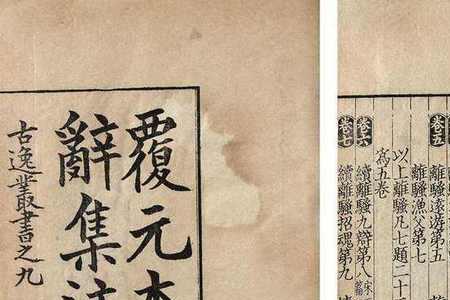 卷五 離騷遠遊第五
離騷漁父第七
以上離騷凡七題二十
爲五卷
卷六 續離騷九辯第八
卷七 續離騷招魂第九
覆元本
辭集注
古逸叢書之九